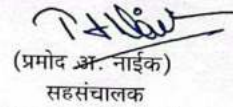 (प्रमोद अ. नाईक)
सहसंचालक